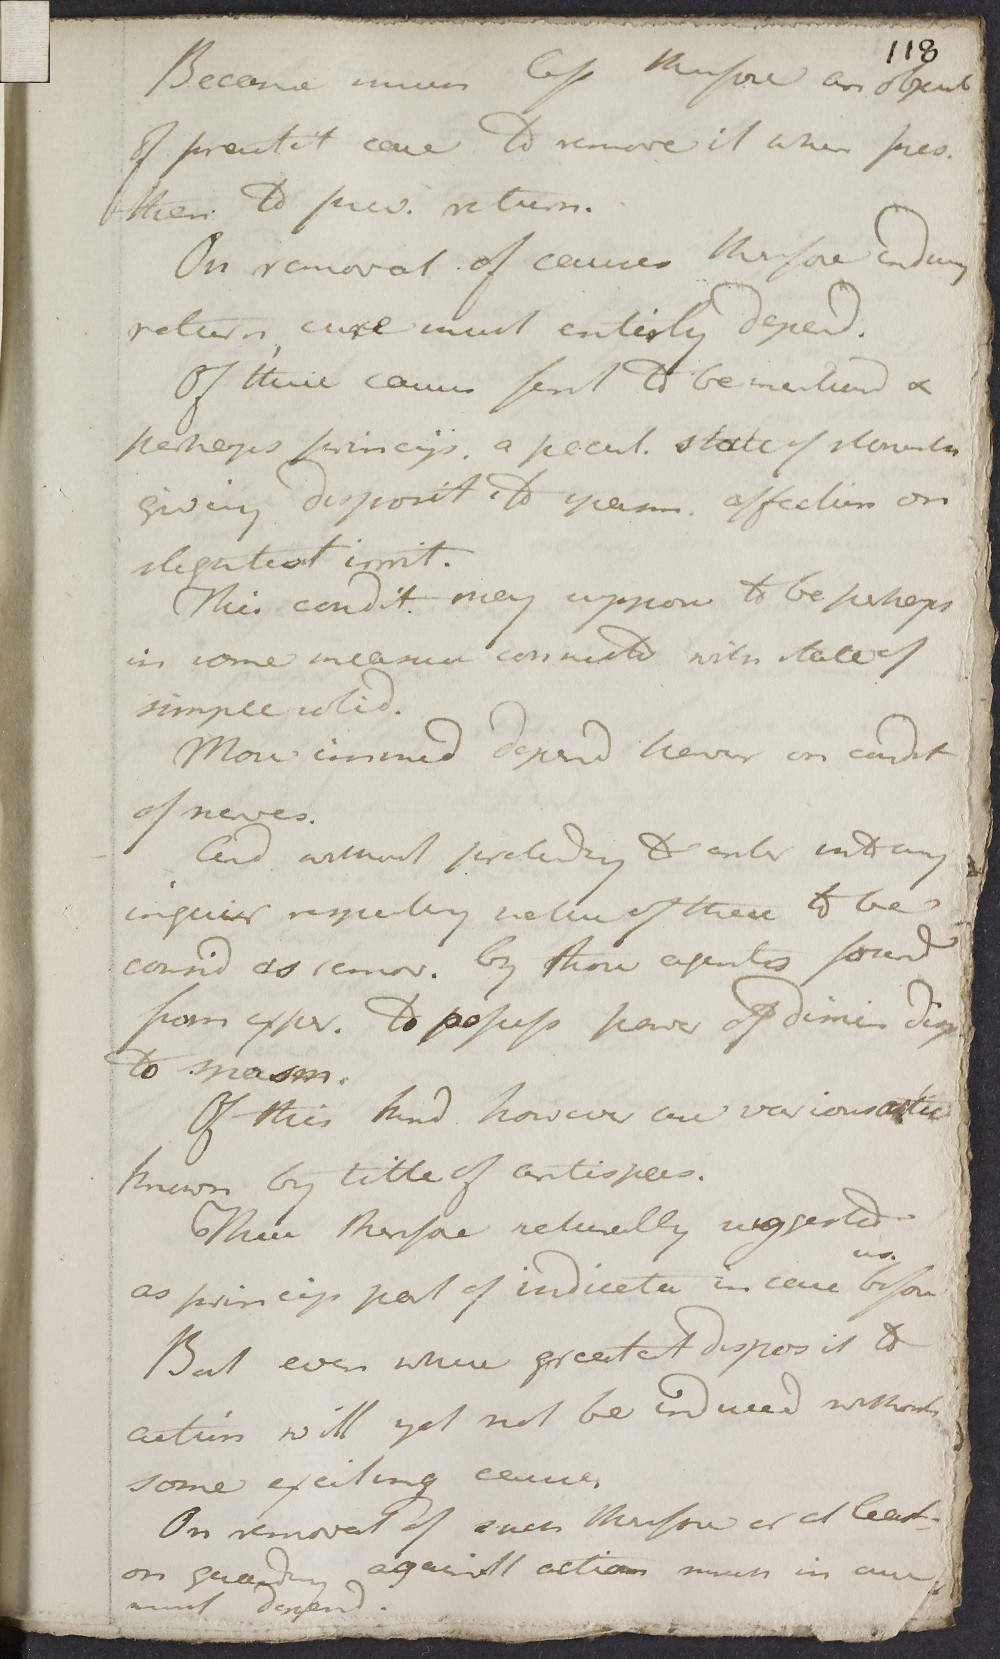 118
Becomes much less therefore an object
of practit care to remove it when pres.
then to prev. return.
On removal of causes therefore inducing
return, cure must entirely depend.
Of these causes first to be mentiond &
perhaps princip. a pecul. state of stomach
giving disposit to spasm. affection on
slightest irrit.
This condit. may suppose to be perhaps
in some measure connectd with state of
simple solid.
More immed depend howevr on condit
of nerves.
And without pretending to enter into any
inquiry respecting nature of these to be
consid as remov. by those agents found
from exper. to possess power of dimin disp
to spasm.
Of this kind however are various artic
known by title of antispas.
These therefore naturally suggested
as princip part of indicatn in case before
us.
But even where greatest disposit to
action will yet not be induced without
some exciting cause,
On removal of such therefore or at least
on guarding against action much in cure
must depend.